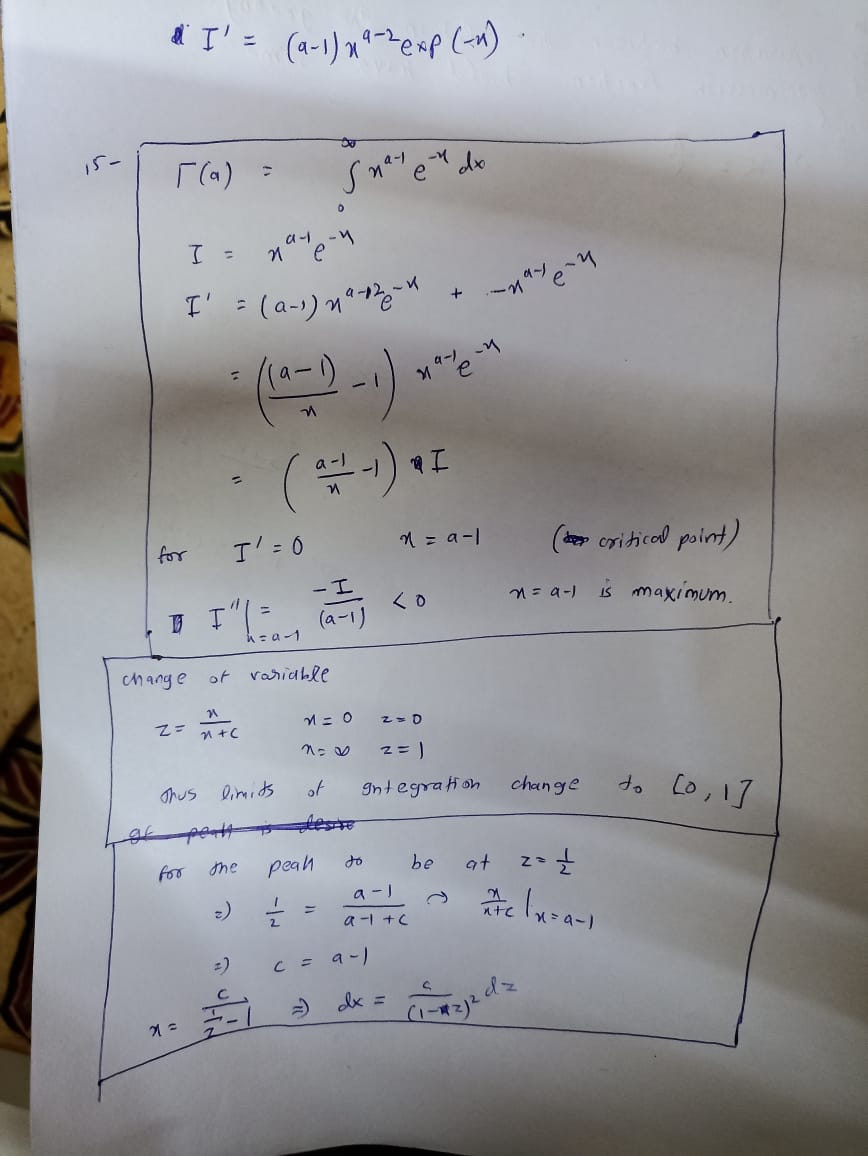 I' = (a-1) x^{a-2} exp(-x).
15- Γ(a) = ∫_0^∞ x^{a-1} e^{-x} dx
I = x^{a-1} e^{-x}
I' = (a-1) x^{a-2} e^{-x} + -x^{a-1} e^{-x}
= ((a-1)/x - 1) x^{a-1} e^{-x}
= (a-1/x - 1) I
for I' = 0 x = a-1 (critical point)
I''|_{x=a-1} = -I/(a-1) < 0 x = a-1 is maximum.
change of variable
z = x/x+c x = 0 z = 0
x = ∞ z = 1
Thus limits of integration change to [0, 1]
for the peak to be at z = 1/2
⇒) 1/2 = a-1/a-1+c → x/x+c |_{x=a-1}
⇒) c = a-1
x = c/(1/z - 1) ⇒) dx = c/(1-z)^2 dz